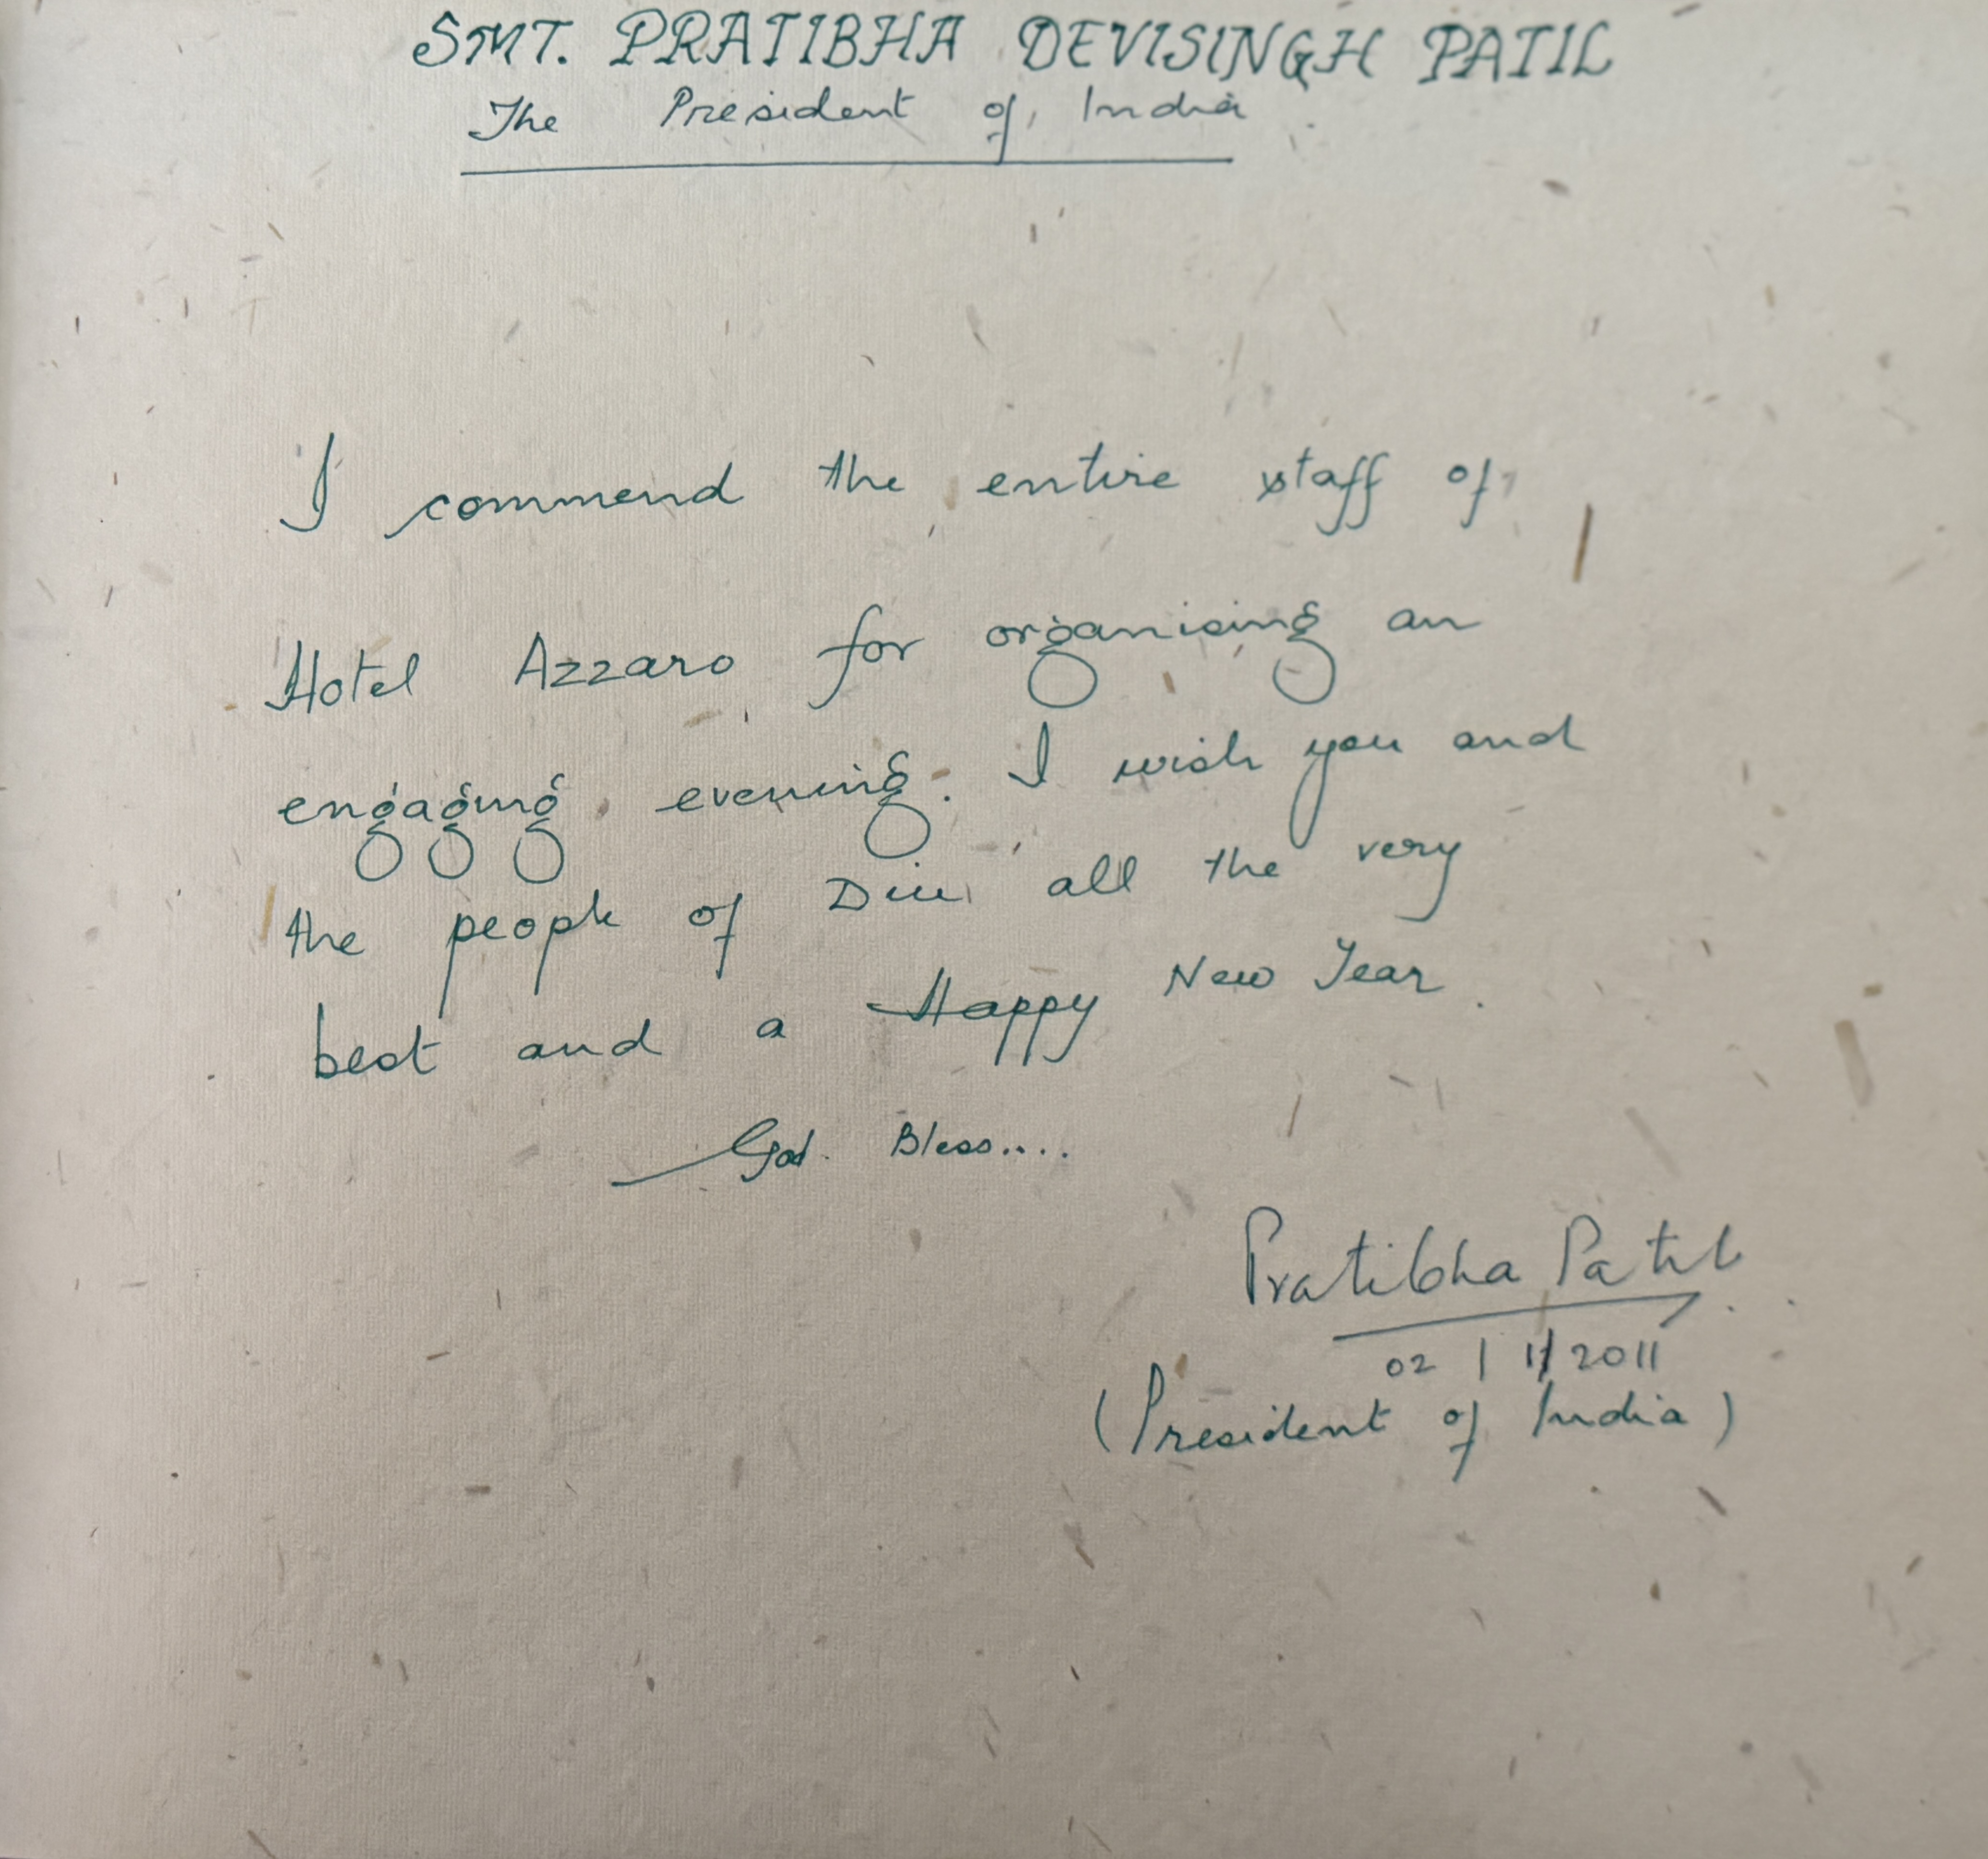 SMT. PRATIBHA DEVISINGH PATIL
The President of India
I commend the entire staff of
Hotel Azzaro for organising an
engaging evening. I wish you and
the people of Diu all the very
best and a Happy New Year.
God Bless....
Pratibha Patil
02 | 1/2011
(President of India)